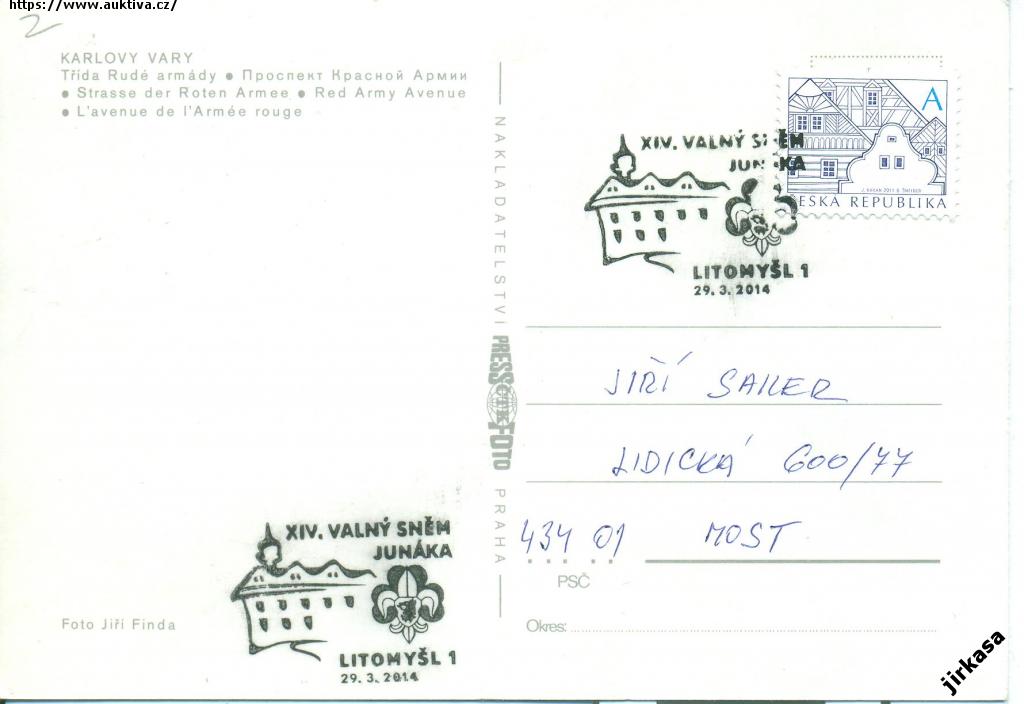 https://www.auktiva.cz/
2
KARLOVY VARY
Třída Rudé armády ● Проспект Красной Армии
● Strasse der Roten Armee ● Red Army Avenue
● L'avenue de l'Armée rouge
NAKLADATELSTVÍ PRESSFOTO PRAHA
ČTK
A
ČESKÁ REPUBLIKA
XIV. VALNÝ SNĚM
JUNÁKA
LITOMYŠL 1
29. 3. 2014
JIŘÍ SAILER
LIDICKÁ 600/77
434 01 MOST
PSČ
Okres:
XIV. VALNÝ SNĚM
JUNÁKA
LITOMYŠL 1
29. 3. 2014
Foto Jiří Finda
jirkasa